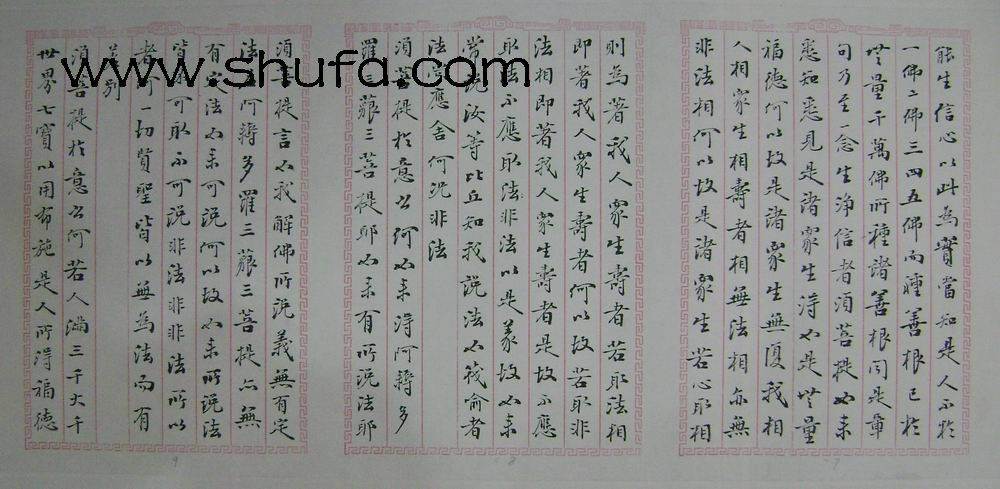 能生信心以此為實當知是人不於
一佛二佛三四五佛而種善根已於
無量千萬佛所種諸善根聞是章
句乃至一念生淨信者須菩提如来
悉知悉見是諸衆生得如是無量
福德何以故是諸衆生無復我相
人相衆生相壽者相無法相亦無
非法相何以故是諸衆生若心取相
則為著我人衆生壽者若取法相
即著我人衆生壽者何以故若取非
法相即著我人衆生壽者是故不應
取法不應取非法以是義故如来
常說汝等比丘知我說法如筏喻者
法尚應舍何況非法
須菩提於意云何如来得阿耨多
羅三藐三菩提耶如来有所說法耶
須菩提言如我解佛所說義無有定
法名阿耨多羅三藐三菩提亦無
有定法如来可說何以故如来所說法
皆不可取不可說非法非非法所以
者何一切賢聖皆以無為法而有
差別
須菩提於意云何若人滿三千大千
世界七寶以用布施是人所得福德
www.shufa.com
7
8
9